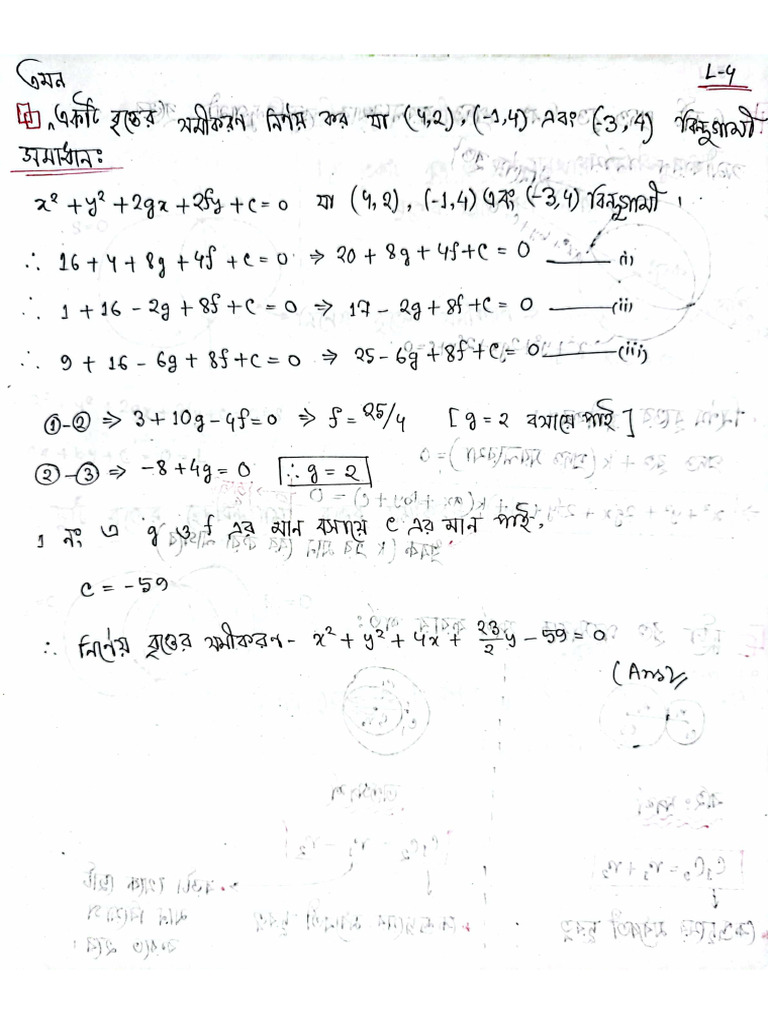 যেমন
L-4
একটি বৃত্তের সমীকরণ নির্ণয় কর যা (4,2), (-1,4) এবং (-3,4) বিন্দুগামী
সমাধানঃ
x² + y² + 2gx + 2fy + c = 0 যা (4,2), (-1,4) এবং (-3,4) বিন্দুগামী।
∴ 16 + 4 + 8g + 4f + c = 0 ⇒ 20 + 8g + 4f + c = 0 ——— (i)
∴ 1 + 16 - 2g + 8f + c = 0 ⇒ 17 - 2g + 8f + c = 0 ——— (ii)
∴ 9 + 16 - 6g + 8f + c = 0 ⇒ 25 - 6g + 8f + c = 0 ——— (iii)
①-② ⇒ 3 + 10g - 4f = 0 ⇒ f = 25/4 [g = 2 বসায়ে পাই]
②-③ ⇒ -8 + 4g = 0 ∴ g = 2
1 নং এ g ও f এর মান বসায়ে c এর মান পাই,
c = -59
∴ নির্ণেয় বৃত্তের সমীকরণ- x² + y² + 4x + 23/2 y - 59 = 0
(Ans)